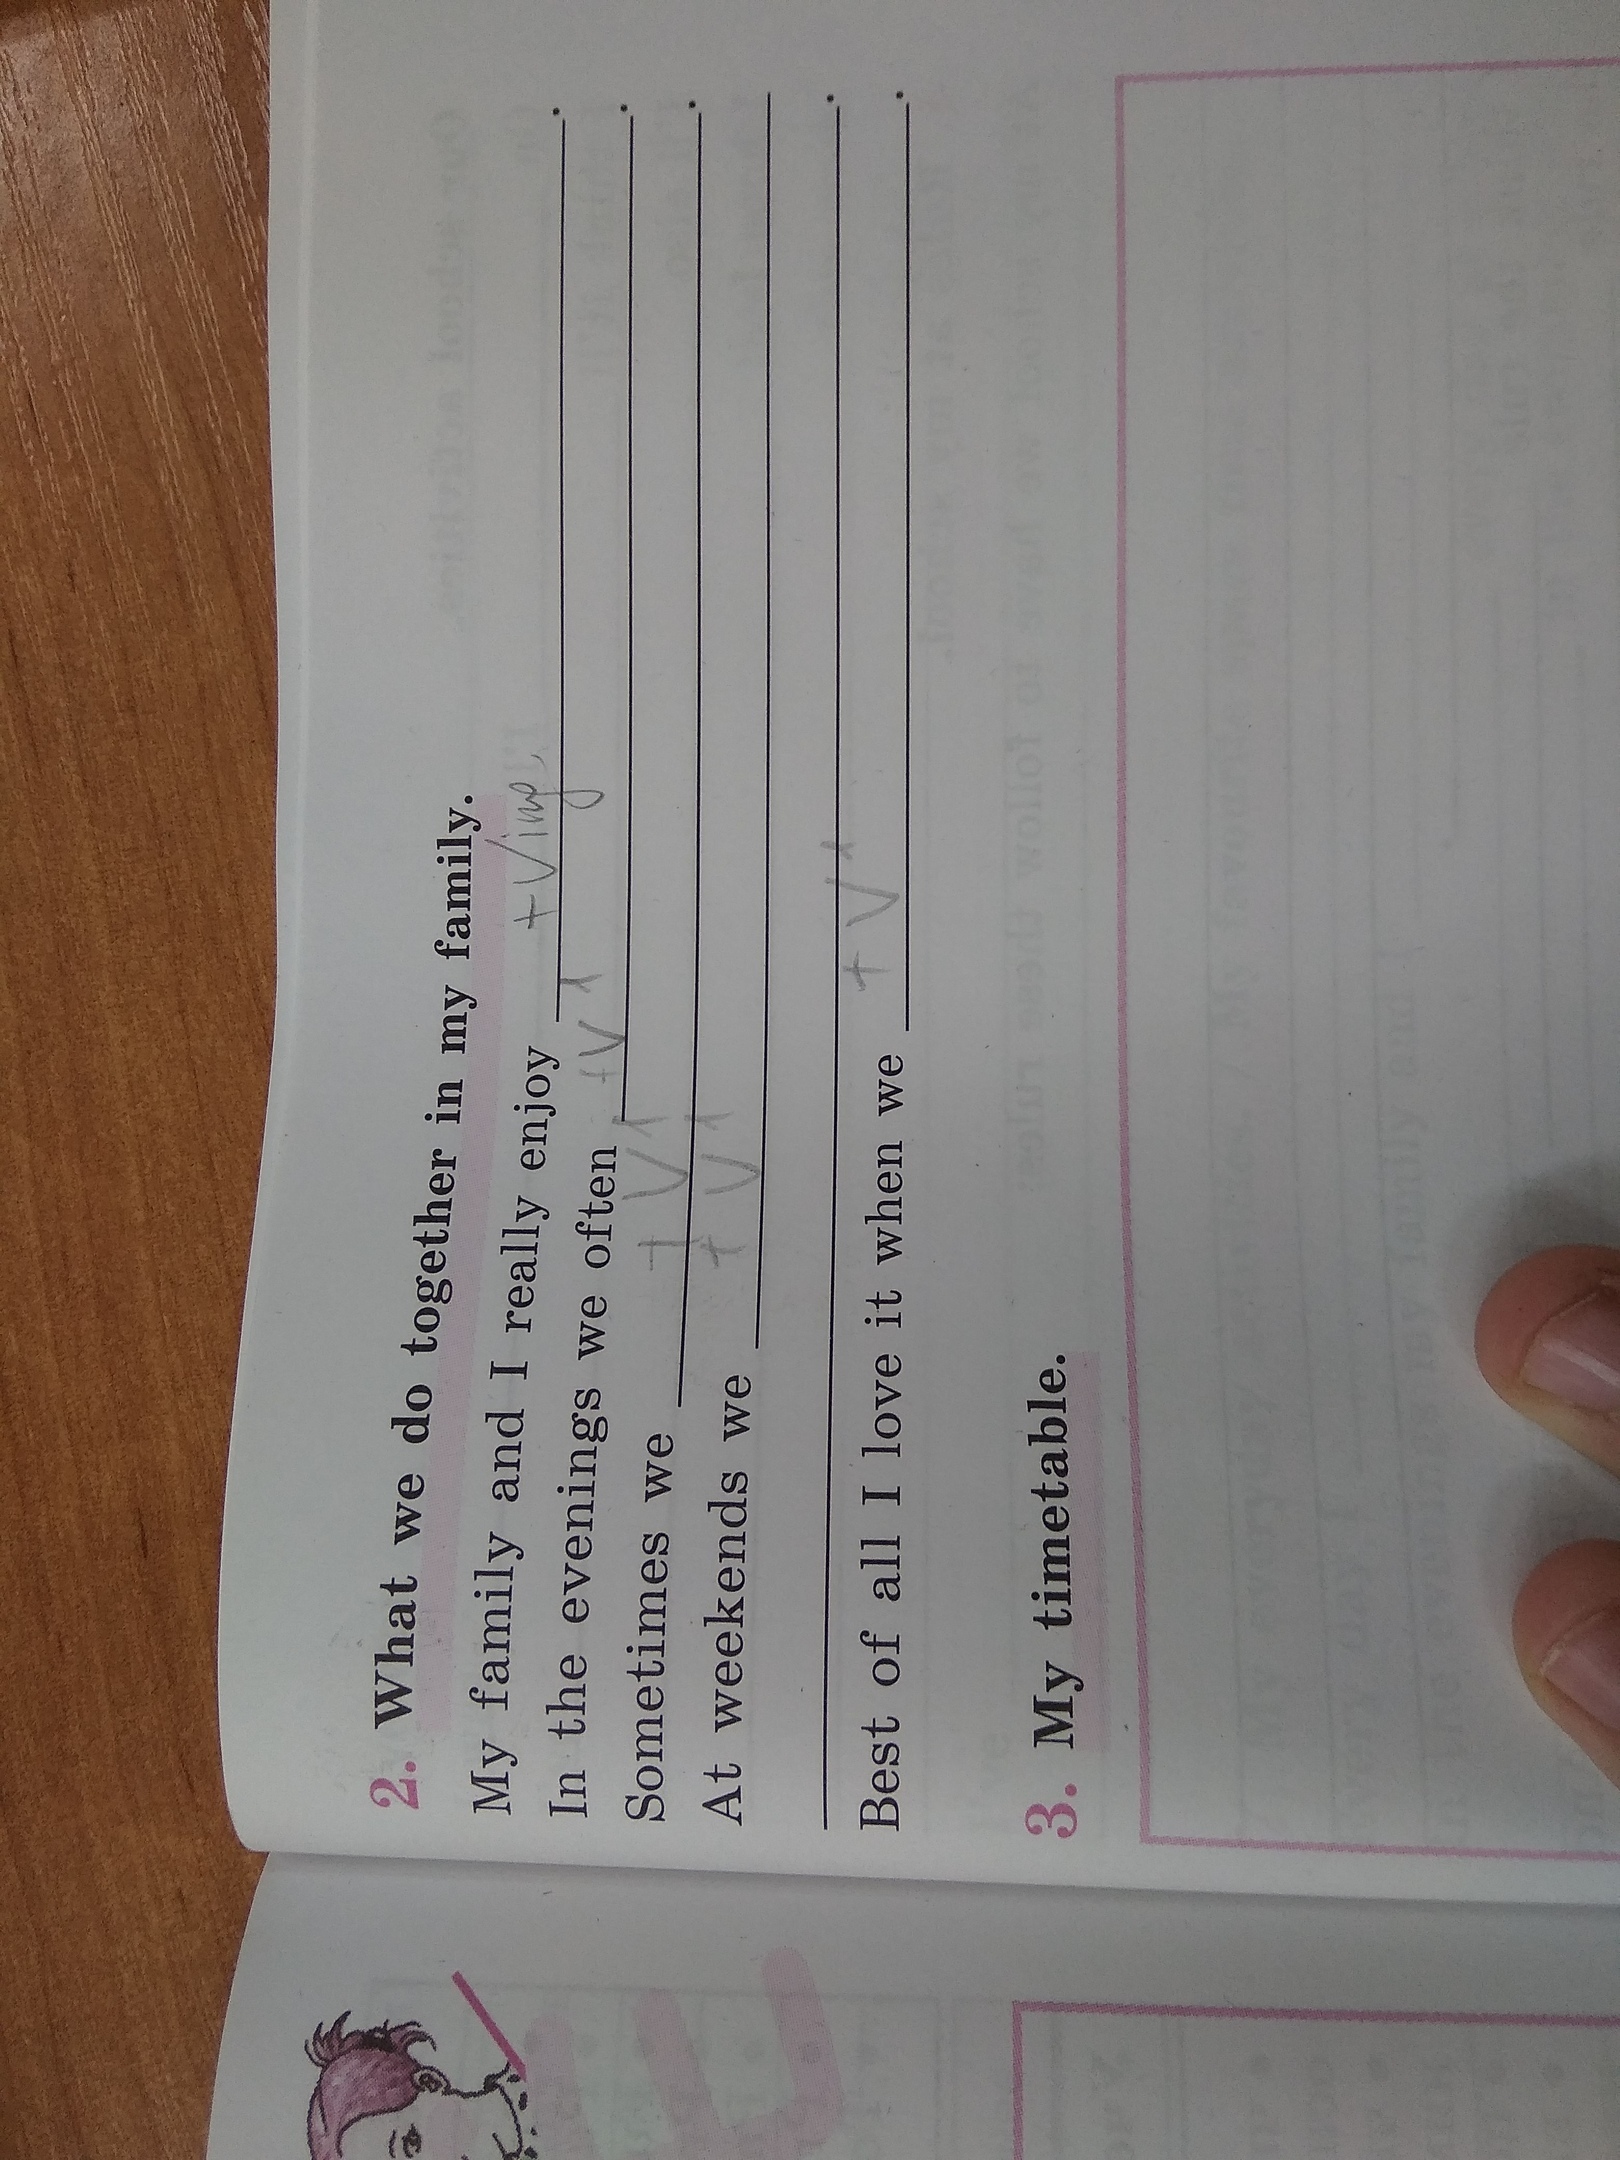 2. What we do together in my family.
My family and I really enjoy +Ving.
In the evenings we often +V1.
Sometimes we +V1.
At weekends we +V1
.
Best of all I love it when we +V1.
3. My timetable.